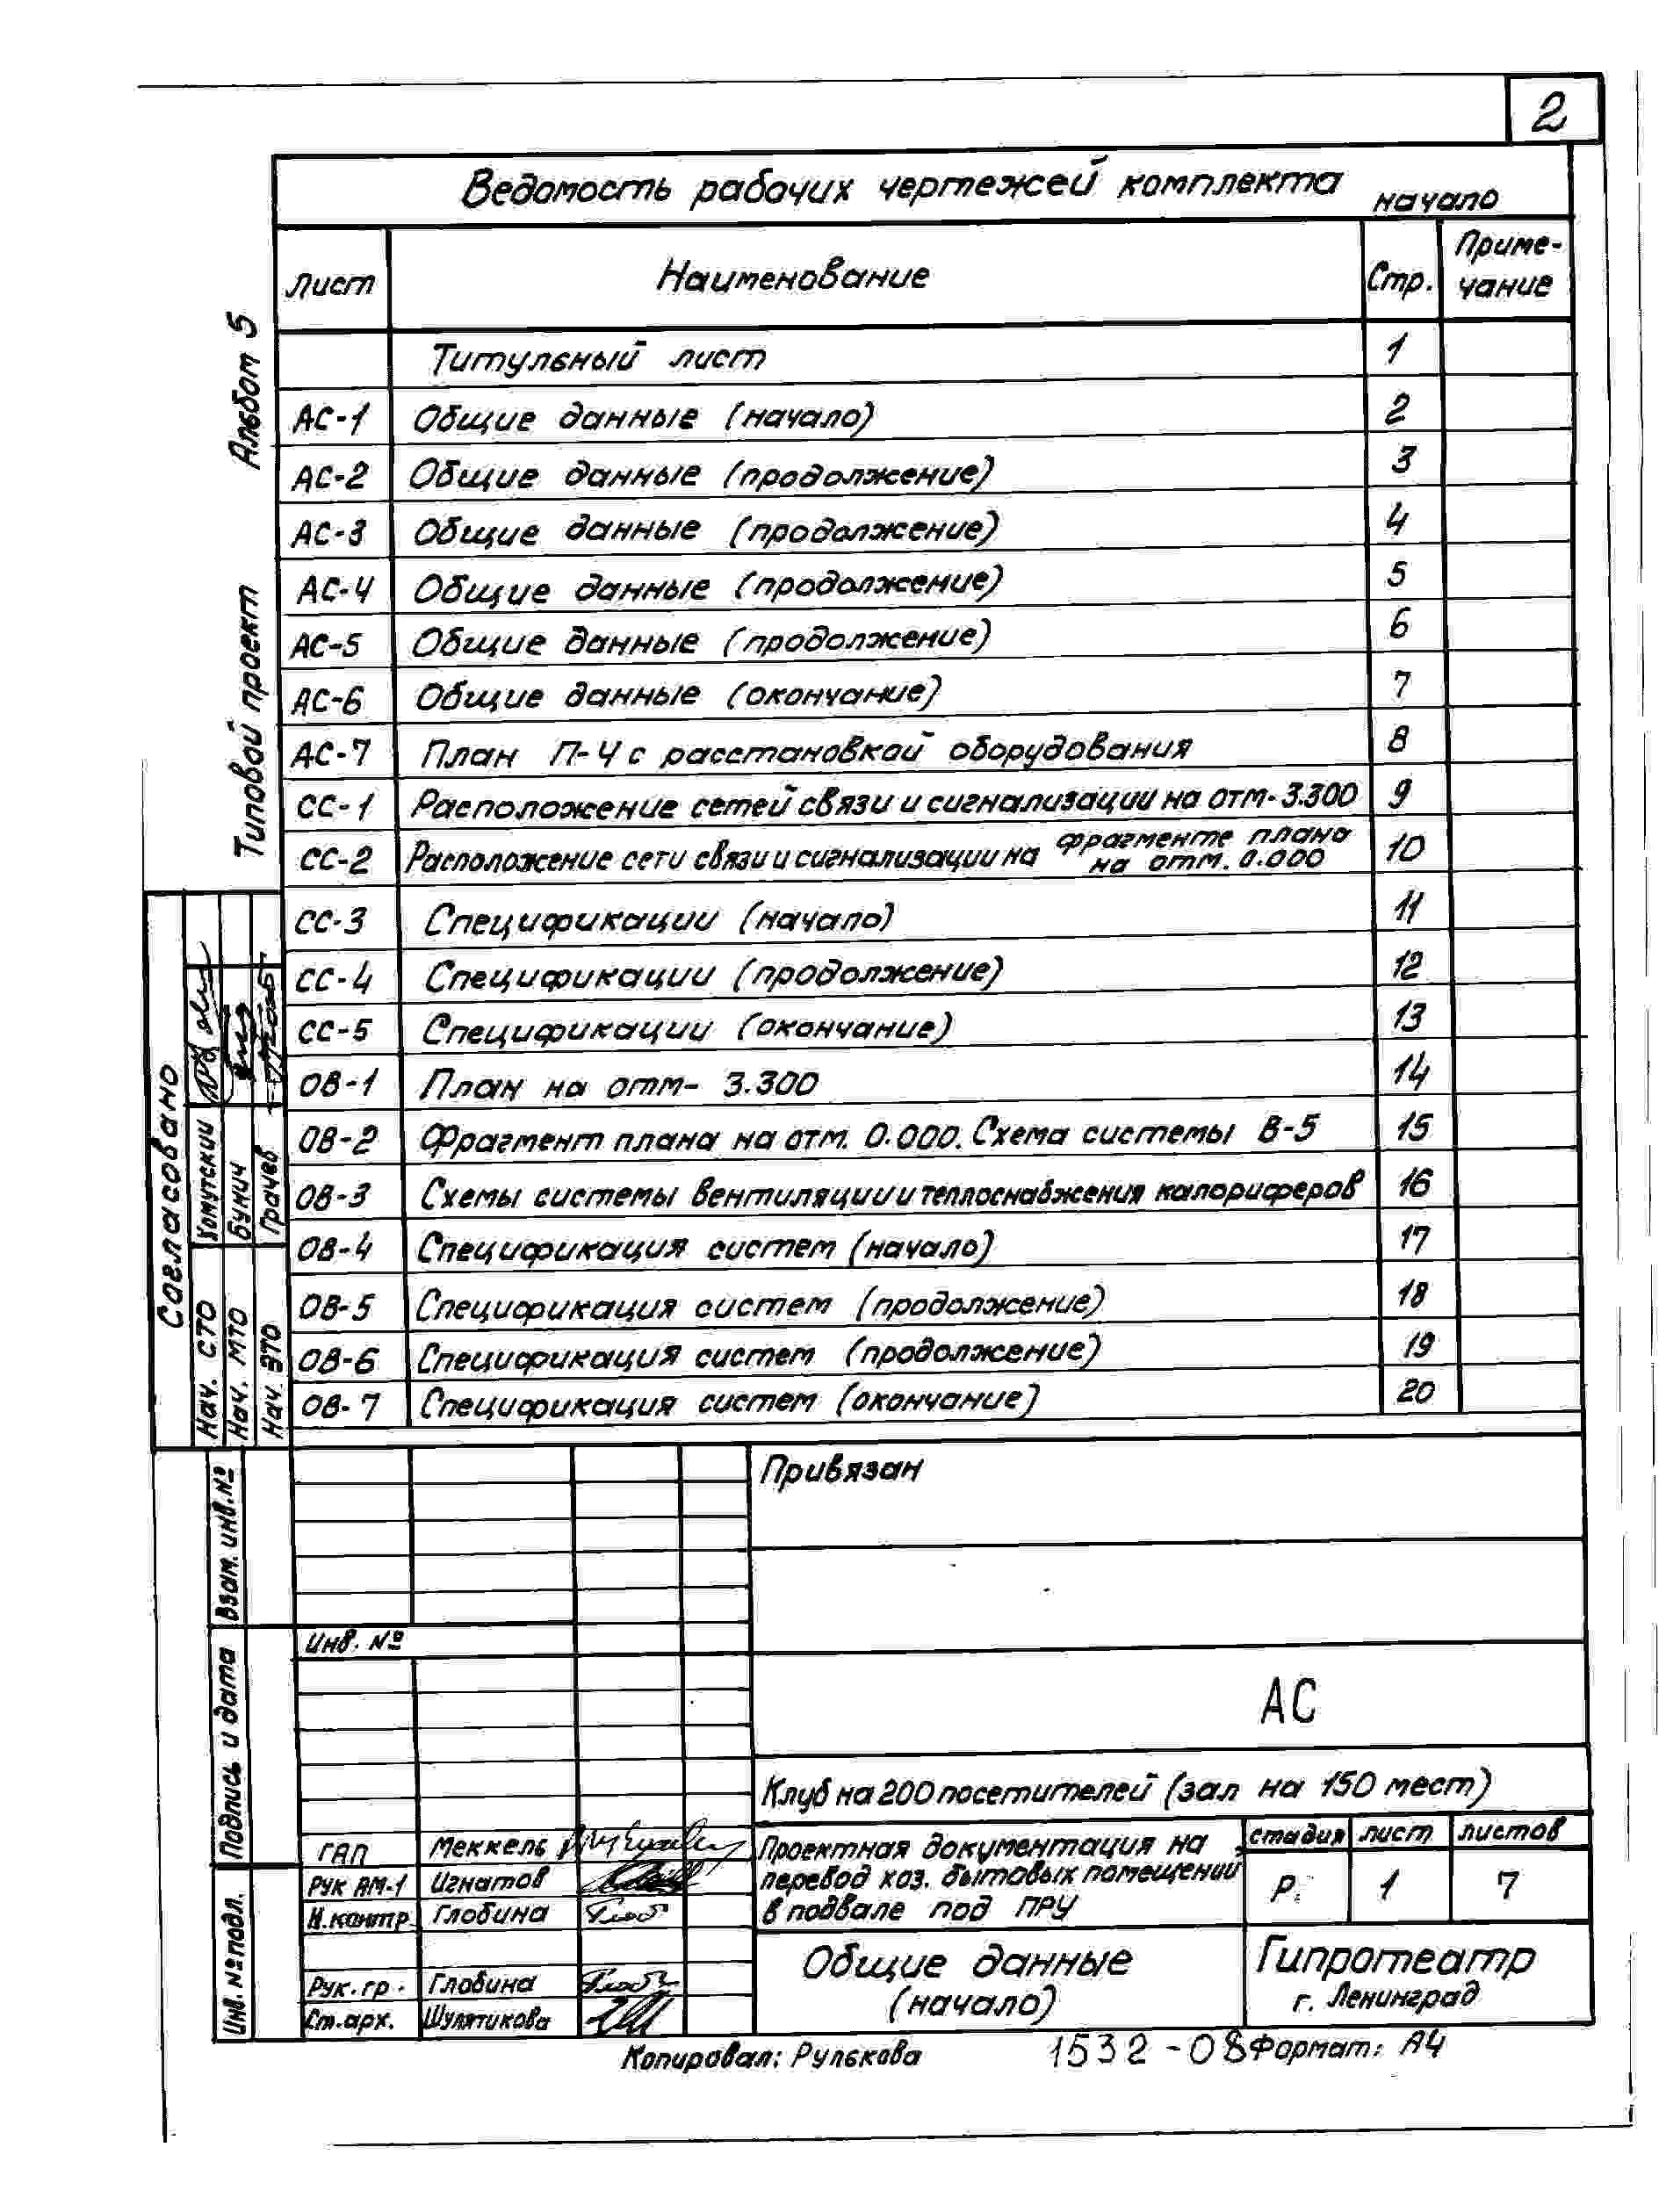 2
Ведомость рабочих чертежей комплекта начало
Лист Наименование Стр. Приме-
чание
Титульный лист 1
АС-1 Общие данные (начало) 2
АС-2 Общие данные (продолжение) 3
АС-3 Общие данные (продолжение) 4
АС-4 Общие данные (продолжение) 5
АС-5 Общие данные (продолжение) 6
АС-6 Общие данные (окончание) 7
АС-7 План П-4 с расстановкой оборудования 8
СС-1 Расположение сетей связи и сигнализации на отм-3.300 9
СС-2 Расположение сети связи и сигнализации на фрагменте плана
на отм. 0.000 10
СС-3 Спецификации (начало) 11
СС-4 Спецификации (продолжение) 12
СС-5 Спецификации (окончание) 13
ОВ-1 План на отм- 3.300 14
ОВ-2 Фрагмент плана на отм. 0.000. Схема системы В-5 15
ОВ-3 Схемы системы вентиляции и теплоснабжения калориферов 16
ОВ-4 Спецификация систем (начало) 17
ОВ-5 Спецификация систем (продолжение) 18
ОВ-6 Спецификация систем (продолжение) 19
ОВ-7 Спецификация систем (окончание) 20
Типовой проект Альбом 5
Согласовано
Нач. СТО Хомутский
Нач. МТО Бунич
Нач. ЭТО Грачев
Взам. инв. №
Подпись и дата
Инв. № подл.
Привязан
Инв. №
АС
Клуб на 200 посетителей (зал на 150 мест)
ГАП Меккель
Рук АМ-1 Игнатов
Н.контр. Глобина
Рук. гр. Глобина
Ст. арх. Шулятикова
Проектная документация на
перевод хоз. бытовых помещений
в подвале под ПРУ
стадия лист листов
Р. 1 7
Общие данные
(начало)
Гипротеатр
г. Ленинград
Копировал: Рулькова 1532-08 Формат: А4